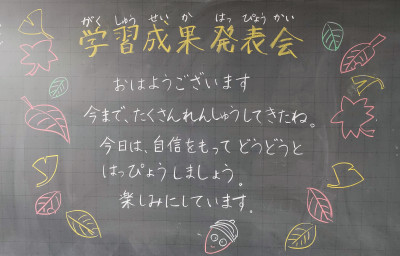 がくしゅうせいかはっぴょうかい
学習成果発表会
おはようございます
今まで、たくさんれんしゅうしてきたね。
今日は、自信をもってどうどうと
はっぴょうしましょう。
楽しみにしています。